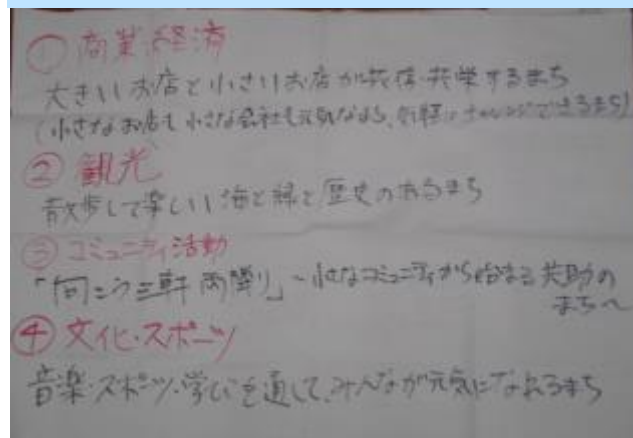 ① 商業・経済
大きいお店と小さいお店が共存・共栄するまち
(小さなお店も小さな会社も元気なまち、気軽にチャレンジできるまち)
② 観光
散歩して楽しい海と緑と歴史のあるまち
③ コミュニティ活動
「向こう三軒両隣り」~小さなコミュニティから始まる共助の
まち~
④ 文化・スポーツ
音楽・スポーツ・学びを通して、みんなが元気になれるまち